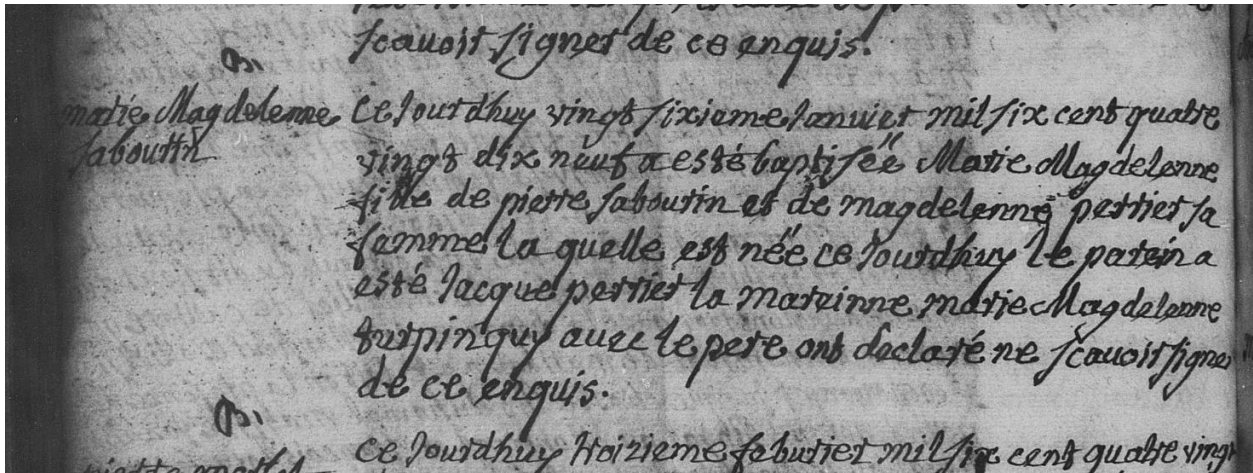 scavoir signer de ce enquis.
B,
marie Magdelenne
sabourin
Ce Jourdhuy vingt sixieme Janvier mil six cent quatre
vingt dix neuf a esté baptisée Marie Magdelenne
fille de pierre sabourin et de magdelenne perrier sa
femme la quelle est née ce Jourdhuy le parein a
esté Jacque perrier la mareinne marie Magdelenne
turpin quy avec le pere ont declaré ne scavoir signer
de ce enquis.
B,
pierre
Ce Jourdhuy troizieme feburier mil six cent quatre vingt